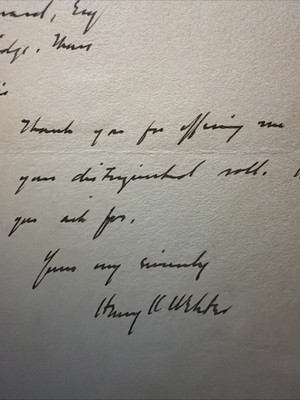 Esq
Mass
Thank you for offering me
your distinguished roll.
you ask for.
Yours very sincerely
Henry K Webster